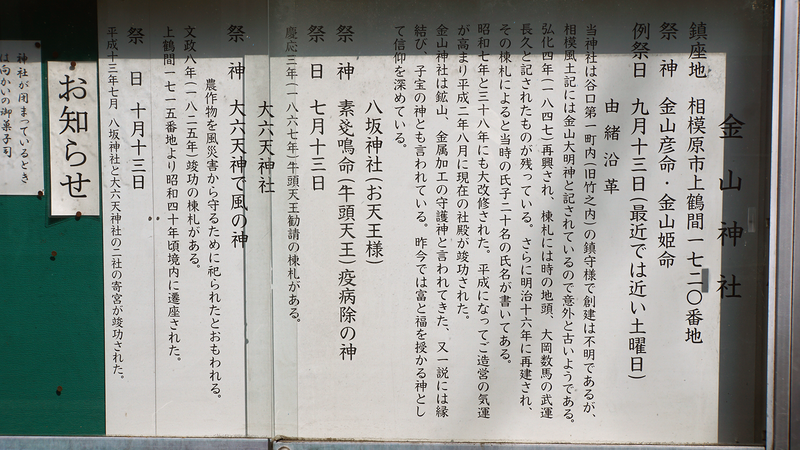 金山神社
鎮座地 相模原市上鶴間一七二〇番地
祭神 金山彦命・金山姫命
例祭日 九月十三日(最近では近い土曜日)
由緒沿革
当神社は谷口第一町内(旧竹之内)の鎮守様で創建は不明であるが、
相模風土記には金山大明神と記されているので意外と古いようである。
弘化四年(一八四七)再興され、棟札には時の地頭、大岡数馬の武運
長久と記されたものが残っている。さらに明治十六年に再建され、
その棟札によると当時の氏子二十名の氏名が書いてある。
昭和七年と三十八年にも大改修された。平成になってご造営の気運
が高まり平成二年八月に現在の社殿が竣功された。
金山神社は鉱山、金属加工の守護神と言われてきた、又一説には縁
結び、子宝の神とも言われている。昨今では富と福を授かる神とし
て信仰を深めている。
八坂神社(お天王様)
祭神 素戔鳴命(牛頭天王)疫病除の神
祭日 七月十三日
慶応三年(一八六七年)牛頭天王勧請の棟札がある。
大六天神社
祭神 大六天神で風の神
農作物を風災害から守るために祀られたとおもわれる。
文政八年(一八二五年)竣功の棟札がある。
上鶴間一七一五番地より昭和四十年頃境内に遷座された。
祭日 十月十三日
平成十三年七月 八坂神社と大六天神社の二社の寄宮が竣功された。
お知らせ
神社が閉まっているとき
は向かいの御菓子司